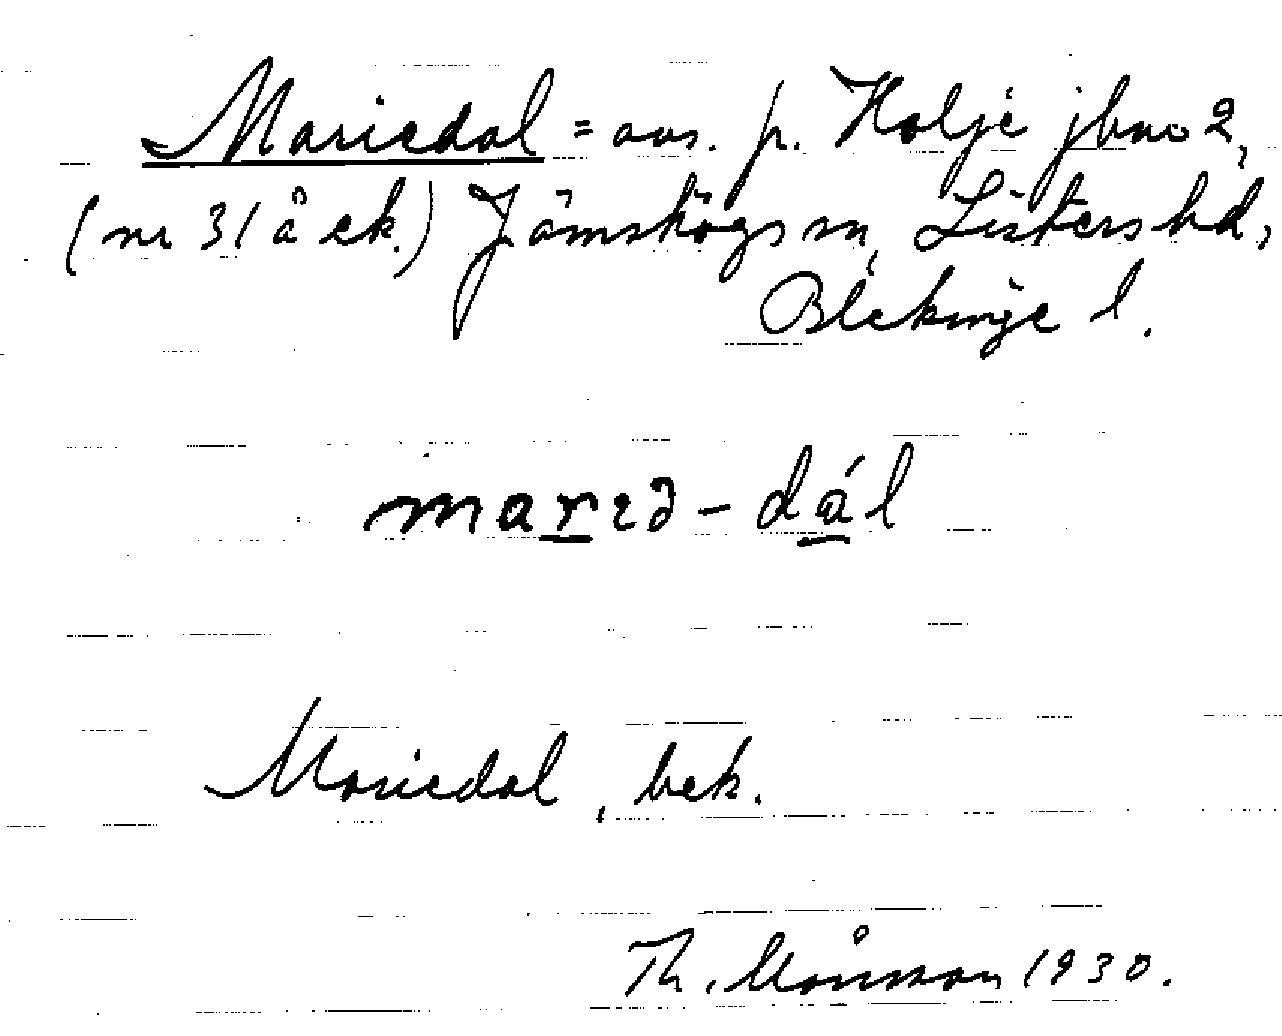 Mariedal = avs. p. Holje jbno 2,
(nr 31 å ek.) Jämshögs sn, Listers hd,
Blekinge l.
marıə-dál
Mariedal, bek.
Th. Månsson 1930.